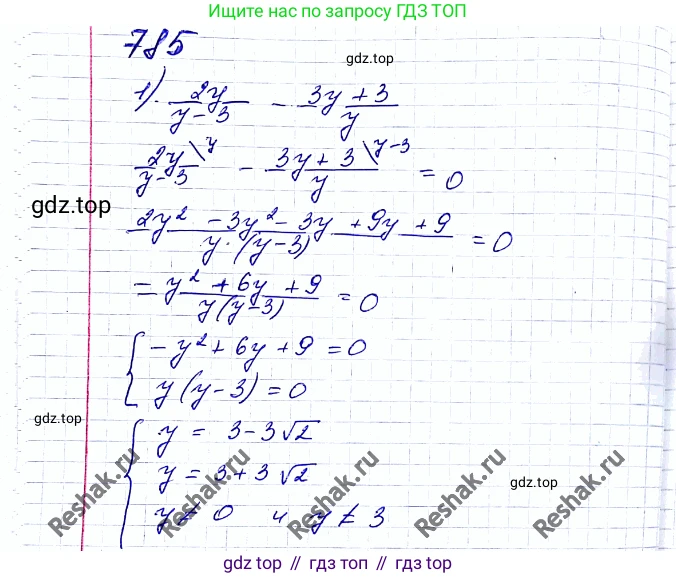 Ищите нас по запросу ГДЗ ТОП
785
gdz.top
1). 2y/(y-3) - (3y+3)/y
2y\y/(y-3) - (3y+3\y-3)/y = 0
gdz.top
(2y² - 3y² - 3y + 9y + 9)/(y·(y-3)) = 0
= (y² + 6y + 9)/(y(y-3)) = 0
-y² + 6y + 9 = 0
y(y-3) = 0
gdz.top
y = 3-3√2
y = 3+3√2
gdz.top
y ≠ 0 и y ≠ 3
Reshak.ru Reshak.ru Reshak.ru
gdz top // gdz топ // gdz top